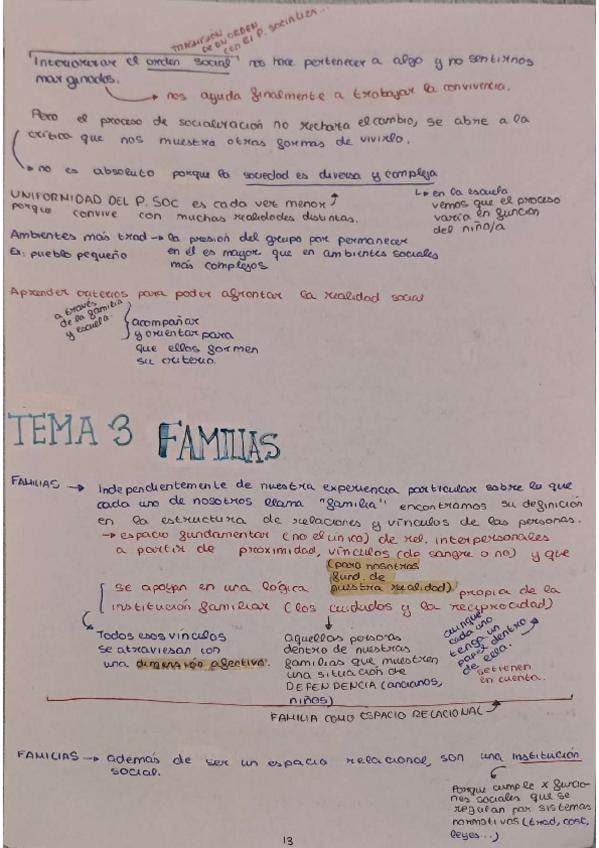 TRANSMISIÓN ORDEN
DE UN ORDEN
CON EL P. SOCIALIZA...
Interiorizar el orden social nos hace pertenecer a algo y no sentirnos
marginados.
nos ayuda finalmente a trabajar la convivencia.
Pero el proceso de socialización no rechaza el cambio, se abre a la
crítica que nos muestra otras formas de vivirlo.
no es absoluto porque la sociedad es diversa y compleja
UNIFORMIDAD DEL P. SOC es cada vez menor
porque convive con muchas realidades distintas.
en la escuela
vemos que el proceso
varía en función
del niño/a
Ambientes más trad → la presión del grupo por permanecer
Ej: pueblo pequeño en él es mayor que en ambientes sociales
más complejos
Aprender criterios para poder afrontar la realidad social
a través
de la familia
y escuela.
acompañar
y orientar para
que ellos formen
su criterio.
TEMA 3 FAMILIAS
FAMILIAS → Independientemente de nuestra experiencia particular sobre lo que
cada uno de nosotros llama "familia" encontramos su definición
en la estructura de relaciones y vínculos de las personas.
→ espacio fundamentar (no el único) de rel. interpersonales
a partir de proximidad, vínculos (de sangre o no) y que
(para nosotros
fund. de
nuestra realidad)
se apoyan en una lógica propia de la
institución familiar (los cuidados y la reciprocidad)
Todos esos vínculos
se atraviesan con
una dimensión afectiva.
aquellas personas
dentro de nuestras
familias que muestren
una situación de
DEPENDENCIA (ancianos,
niños)
aunque
cada uno
tenga un
papel dentro
de ella.
se tienen
en cuenta.
FAMILIA COMO ESPACIO RELACIONAL
FAMILIAS → además de ser un espacio relacional, son una institución
social.
Porque cumple x funcio-
nes sociales que se
regulan por sistemas
normativos (trad, cost,
leyes...)
13